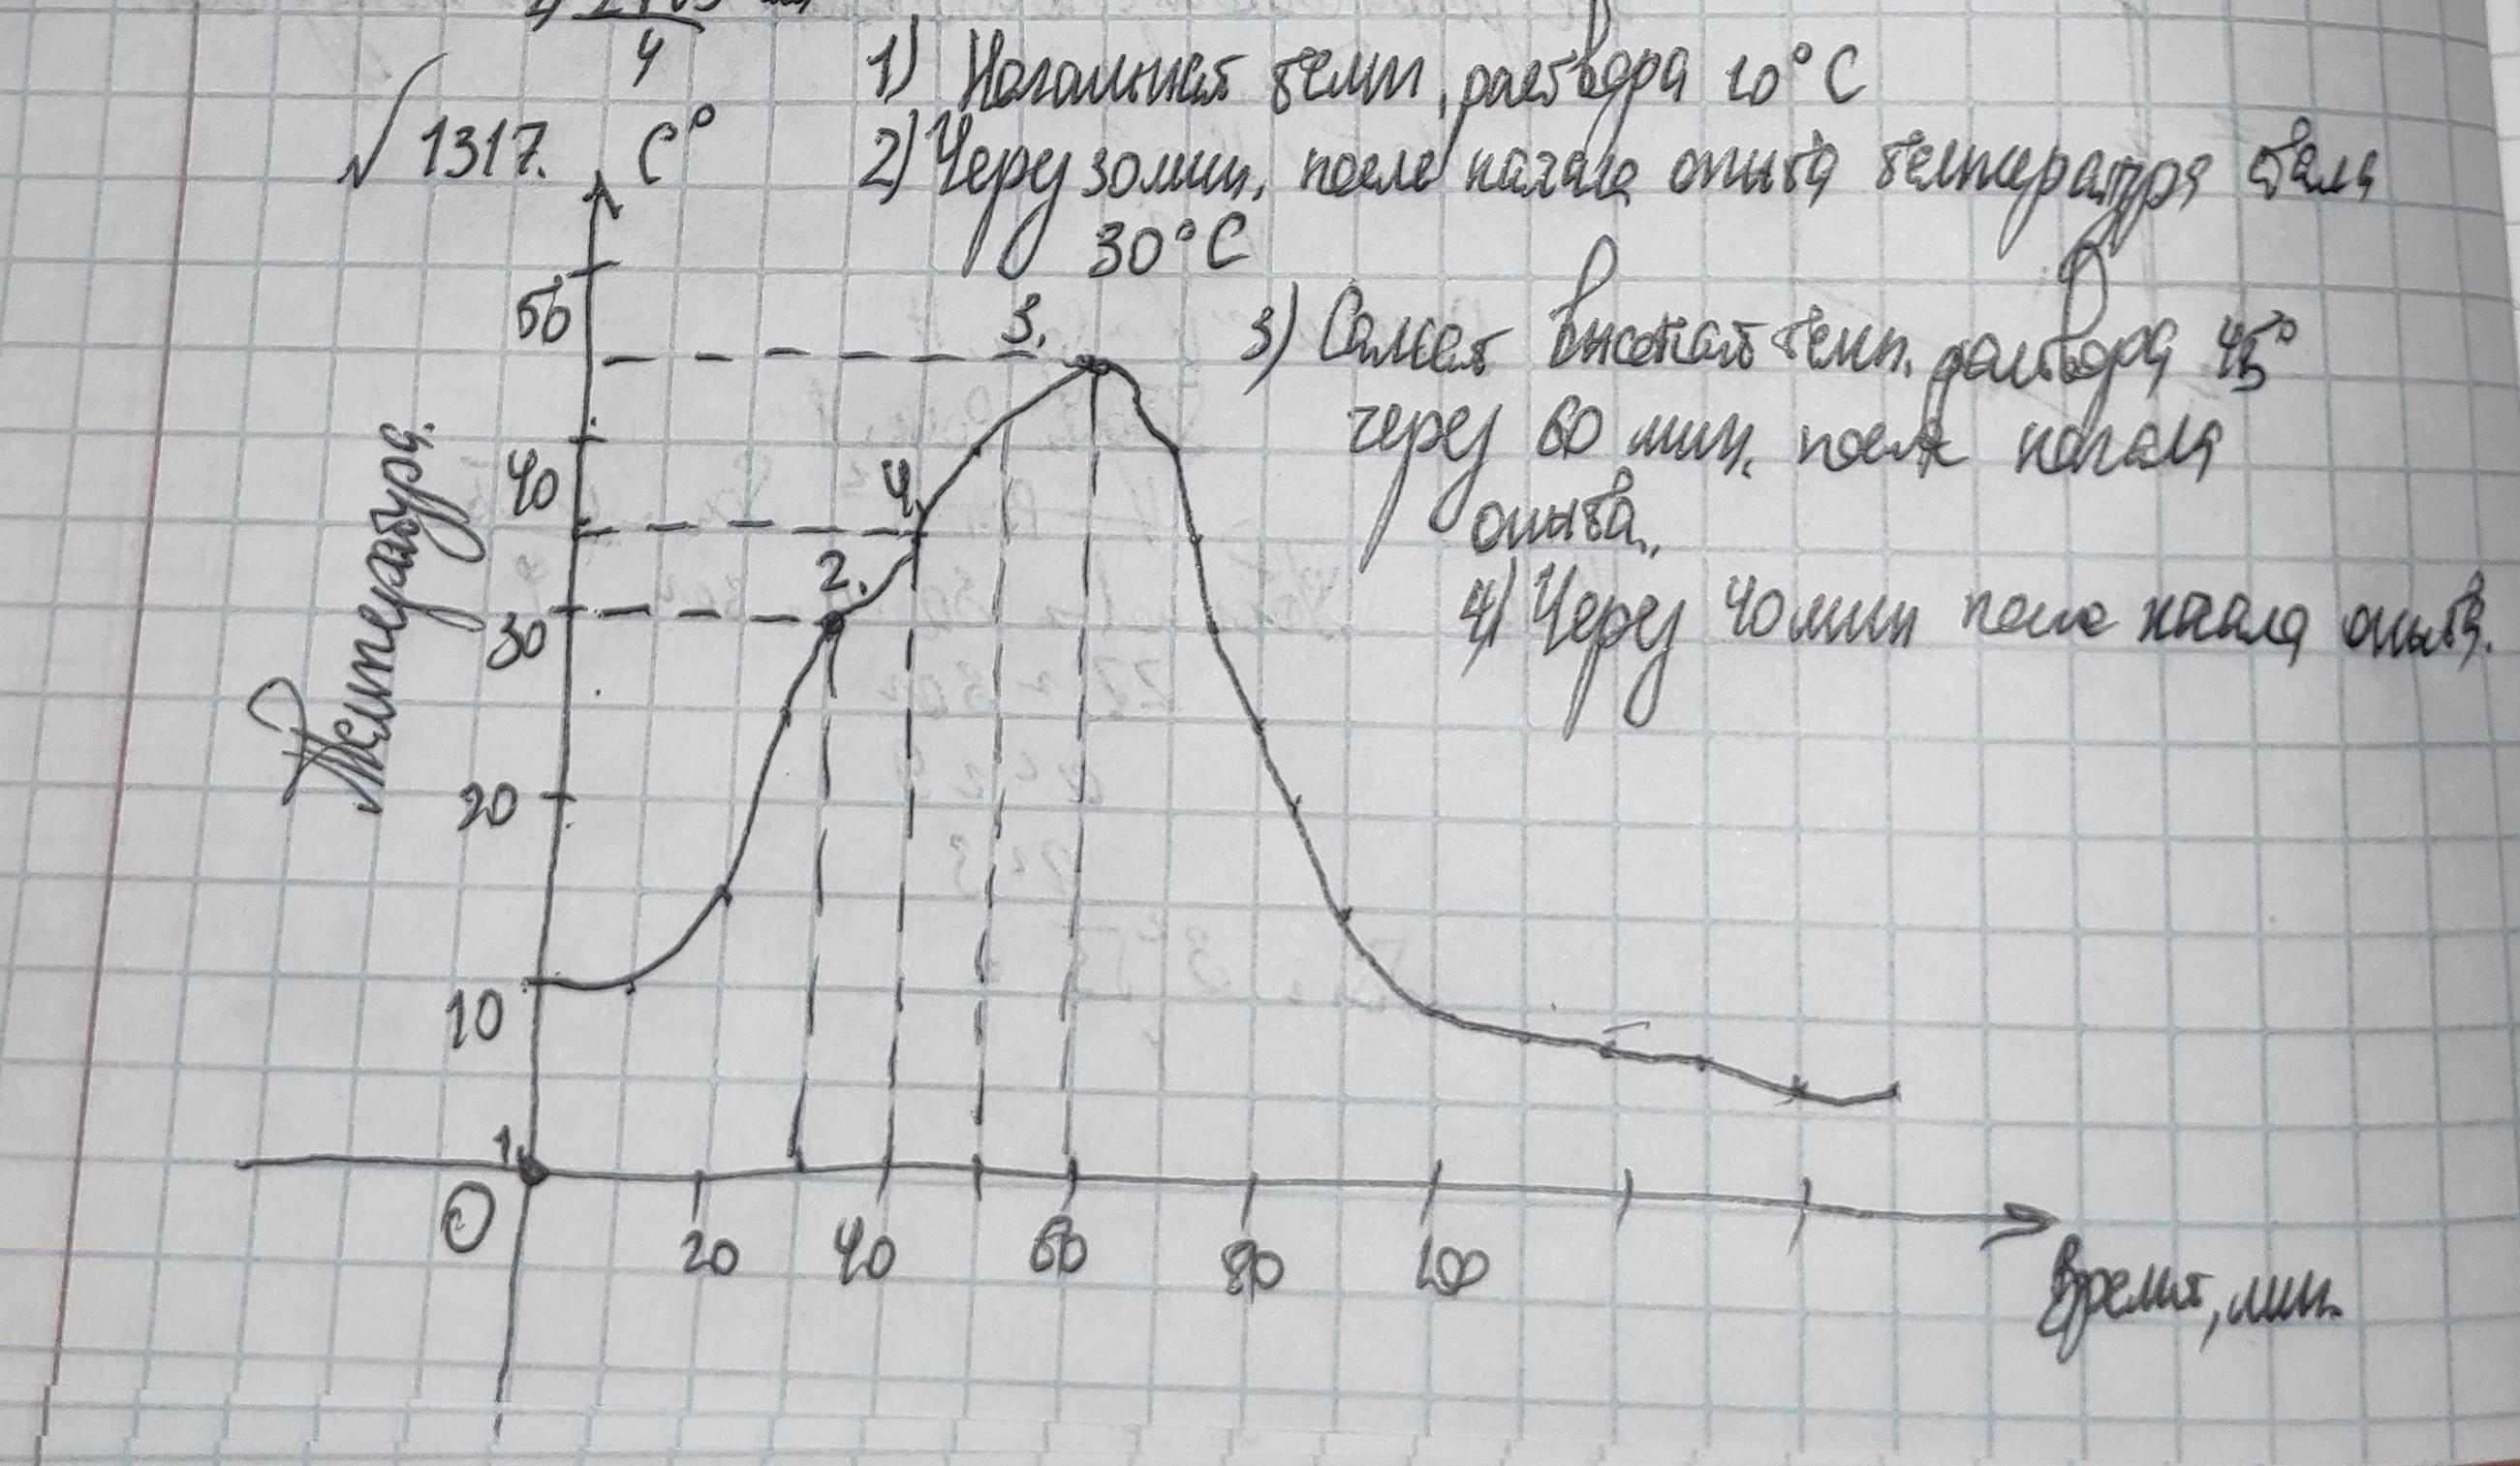 4
√1317.
C°
1) Начальная темп. раствора 10°C
2) Через 30 мин. после начала опыта температура стала
30°C
3) Самая высокая темп. раствора 45°
через 60 мин. после начала
опыта.
4) Через 40 мин после начала опыта.
Температура.
50
40
30
20
10
3.
4.
2.
1.
0
20
40
60
80
100
Время, мин.